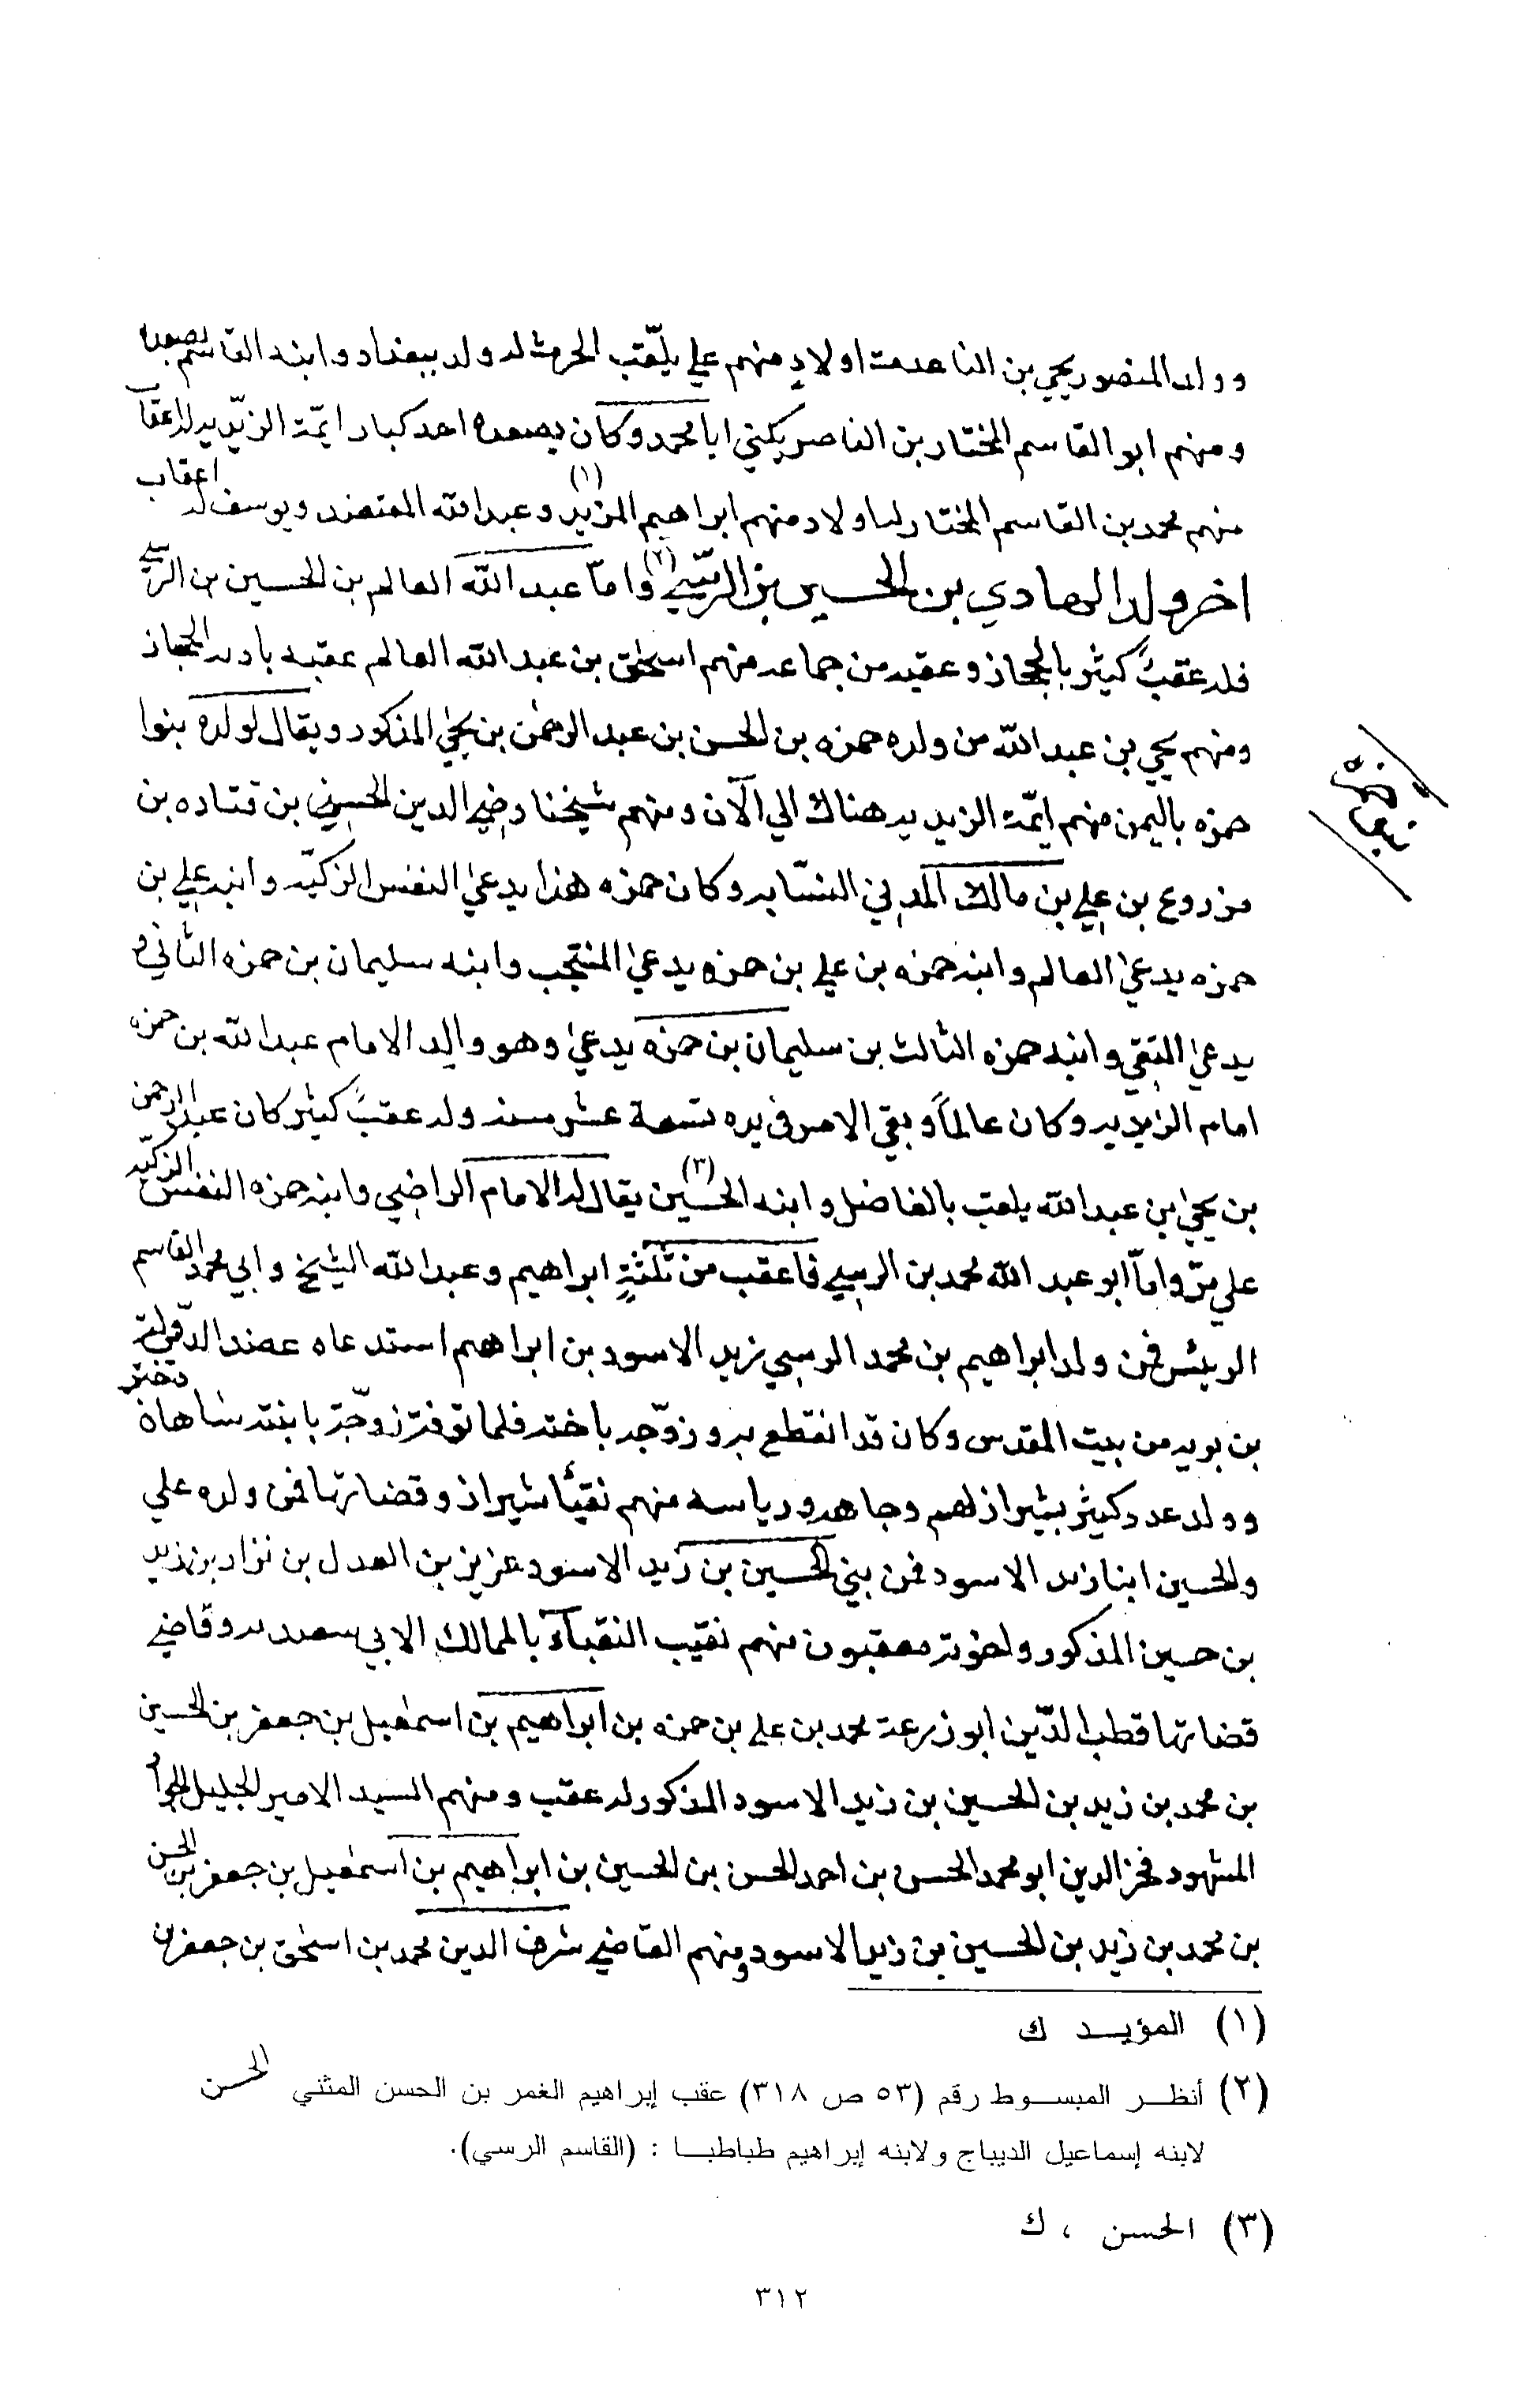 وولد المنصور يحيى بن الناصر عدة اولاد منهم علي يلقب الحرب له ولد ببغداد وابنه القاسم بصعده
ومنهم ابو القاسم المختار بن الناصر يكني ابا محمد وكان بصعده احد كبار ايمّة الزيديه له اعقاب
منهم محمد بن القاسم المختار له اولاد منهم ابراهيم المزيد (١) وعبد الله المعتضد ويوسف له اعقاب
اخر ولد الهادي بن الحسين بن الرسّي (٢) وامّا عبد الله العالم بن الحسين بن الرسي
فله عقبٌ كثير بالحجاز وعقبه من جماعه منهم اسحٰق بن عبد الله العالم عقبه بادية الحجاز
ومنهم يحيي بن عبد الله من ولده حمزه بن الحسن بن عبد الرحمٰن بن يحيٰ المذكور ويقال لولده بنوا
بنو حمزه
حمزه باليمن منهم ايمّة الزيديه هناك الي الآن ومنهم شيخنا رضي الدين الحسيني بن قتاده بن
مزروع بن علي بن مالك المدني النسّابه وكان حمزه هذا يدعيٰ النفس الزكيّه وابنه علي بن
حمزه يدعيٰ العالم وابنه حمزه بن علي بن حمزه يدعيٰ المنتجب وابنه سليمان بن حمزه الثاني
يدعيٰ التقي وابنه حمزه الثالث بن سليمان بن حمزه يدعيٰ وهو والد الامام عبد الله بن حمزه
امام الزيديه وكان عالماً وبقي الامر في يده تسعة عشر سنه وله عقبٌ كثير كان عبد الرحمن
بن يحيٰ بن عبد الله يلقب بالفاضل وابنه الحسين (٣) يقال له الامام الراضي وابنه حمزه النفس الزكيّه
علي مرّ وامّا ابو عبد الله محمد بن الرسي فاعقب من ثلثةٍ ابراهيم وعبد الله الشيخ وابي محمد القاسم
الرييس فمن ولد ابراهيم بن محمد الرسي زيد الاسود بن ابراهيم استدعاه عضد الدّولة
بن بويه من بيت المقدس وكان قد انقطع به وزوّجه باخته فلما توفت زوّجه بابنته شاهان دخت
وولد عدد كثير بشيراز لهم وجاهه ورياسه منهم نقبأ شيراز وقضاتها فمن ولده علي
والحسين ابنا زيد الاسود فمن بني الحسين بن زيد الاسود عزيز بن العدل بن نزار بن زيد
بن حسين المذكور ولخوته معقبون منهم نقيب النقبآء بالممالك الابي سعيديه وقاضي
قضاتها قطب الدّين ابو زرعة محمد بن علي بن حمزه بن ابراهيم بن اسمٰعيل بن جعفر بن الحسين
بن محمد بن زيد بن الحسين بن زيد الاسود المذكور له عقب ومنهم السيد الامير الجليل
المشهود فخر الدين ابو محمد الحسن بن احمد الحسن بن الحسين بن ابراهيم بن اسمٰعيل بن جعفر بن الحسن
بن محمد بن زيد بن الحسين بن زيد الاسود ومنهم القاضي شرف الدين محمد بن اسحٰق بن جعفر بن
(١) المؤيد ك
(٢) أنظر المبسوط رقم (٥٣ ص ٣١٨) عقب إبراهيم الغمر بن الحسن المثني الحسن
لابنه إسماعيل الديباج ولابنه إبراهيم طباطبا : (القاسم الرسي).
(٣) الحسن ، ك
٣١٢